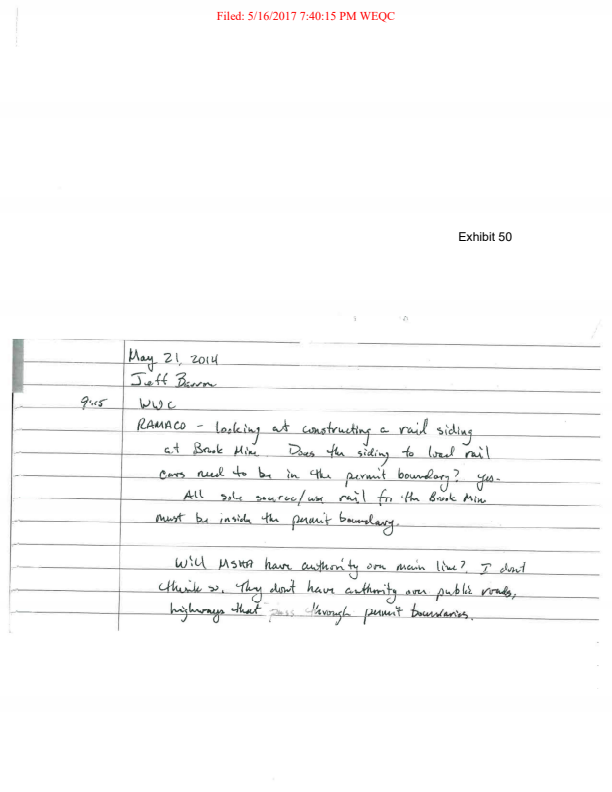 Filed: 5/16/2017 7:40:15 PM WEQC
Exhibit 50
May 21, 2014
Jeff Barron
9:05 WWC
RAMACO - looking at constructing a rail siding
at Brook Mine. Does the siding to load rail
cars need to be in the permit boundary? yes-
All sole source/use rail for the Brook Mine
must be inside the permit boundary.
Will MSHA have authority on main line? I dont
think so. They don't have authority over public roads,
highways that pass through permit boundaries.